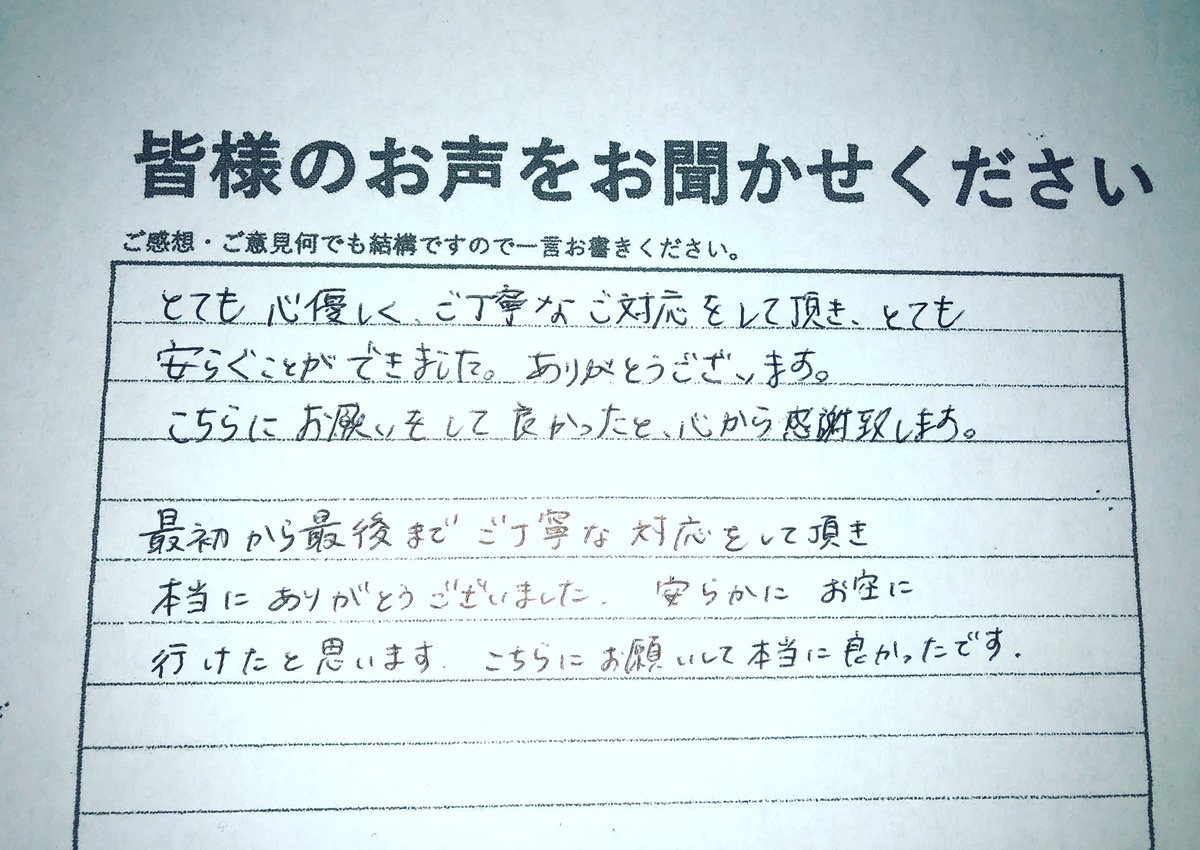 皆様のお声をお聞かせください
ご感想・ご意見何でも結構ですので一言お書きください。
とても心優しく、ご丁寧なご対応をして頂き、とても
安らぐことができました。ありがとうございます。
こちらにお願いをして良かったと、心から感謝致します。
最初から最後までご丁寧な対応をして頂き
本当にありがとうございました. 安らかにお空に
行けたと思います. こちらにお願いして本当に良かったです.